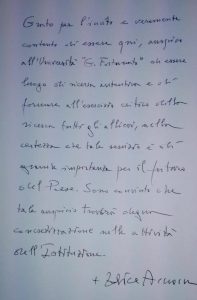 Grato per l'invito e veramente
contento di essere qui, auspico
all'Università "G. Fortunato" di essere
luogo di ricerca autentica e di
formare all'esercizio critico della
ricerca tutti gli allievi, nella
certezza che tale servizio è di
grande importanza per il futuro
del Paese. Sono convinto che
tale auspicio troverà degna
concretizzazione nelle attività
dell'Istituzione.
+ Felice Accrocca